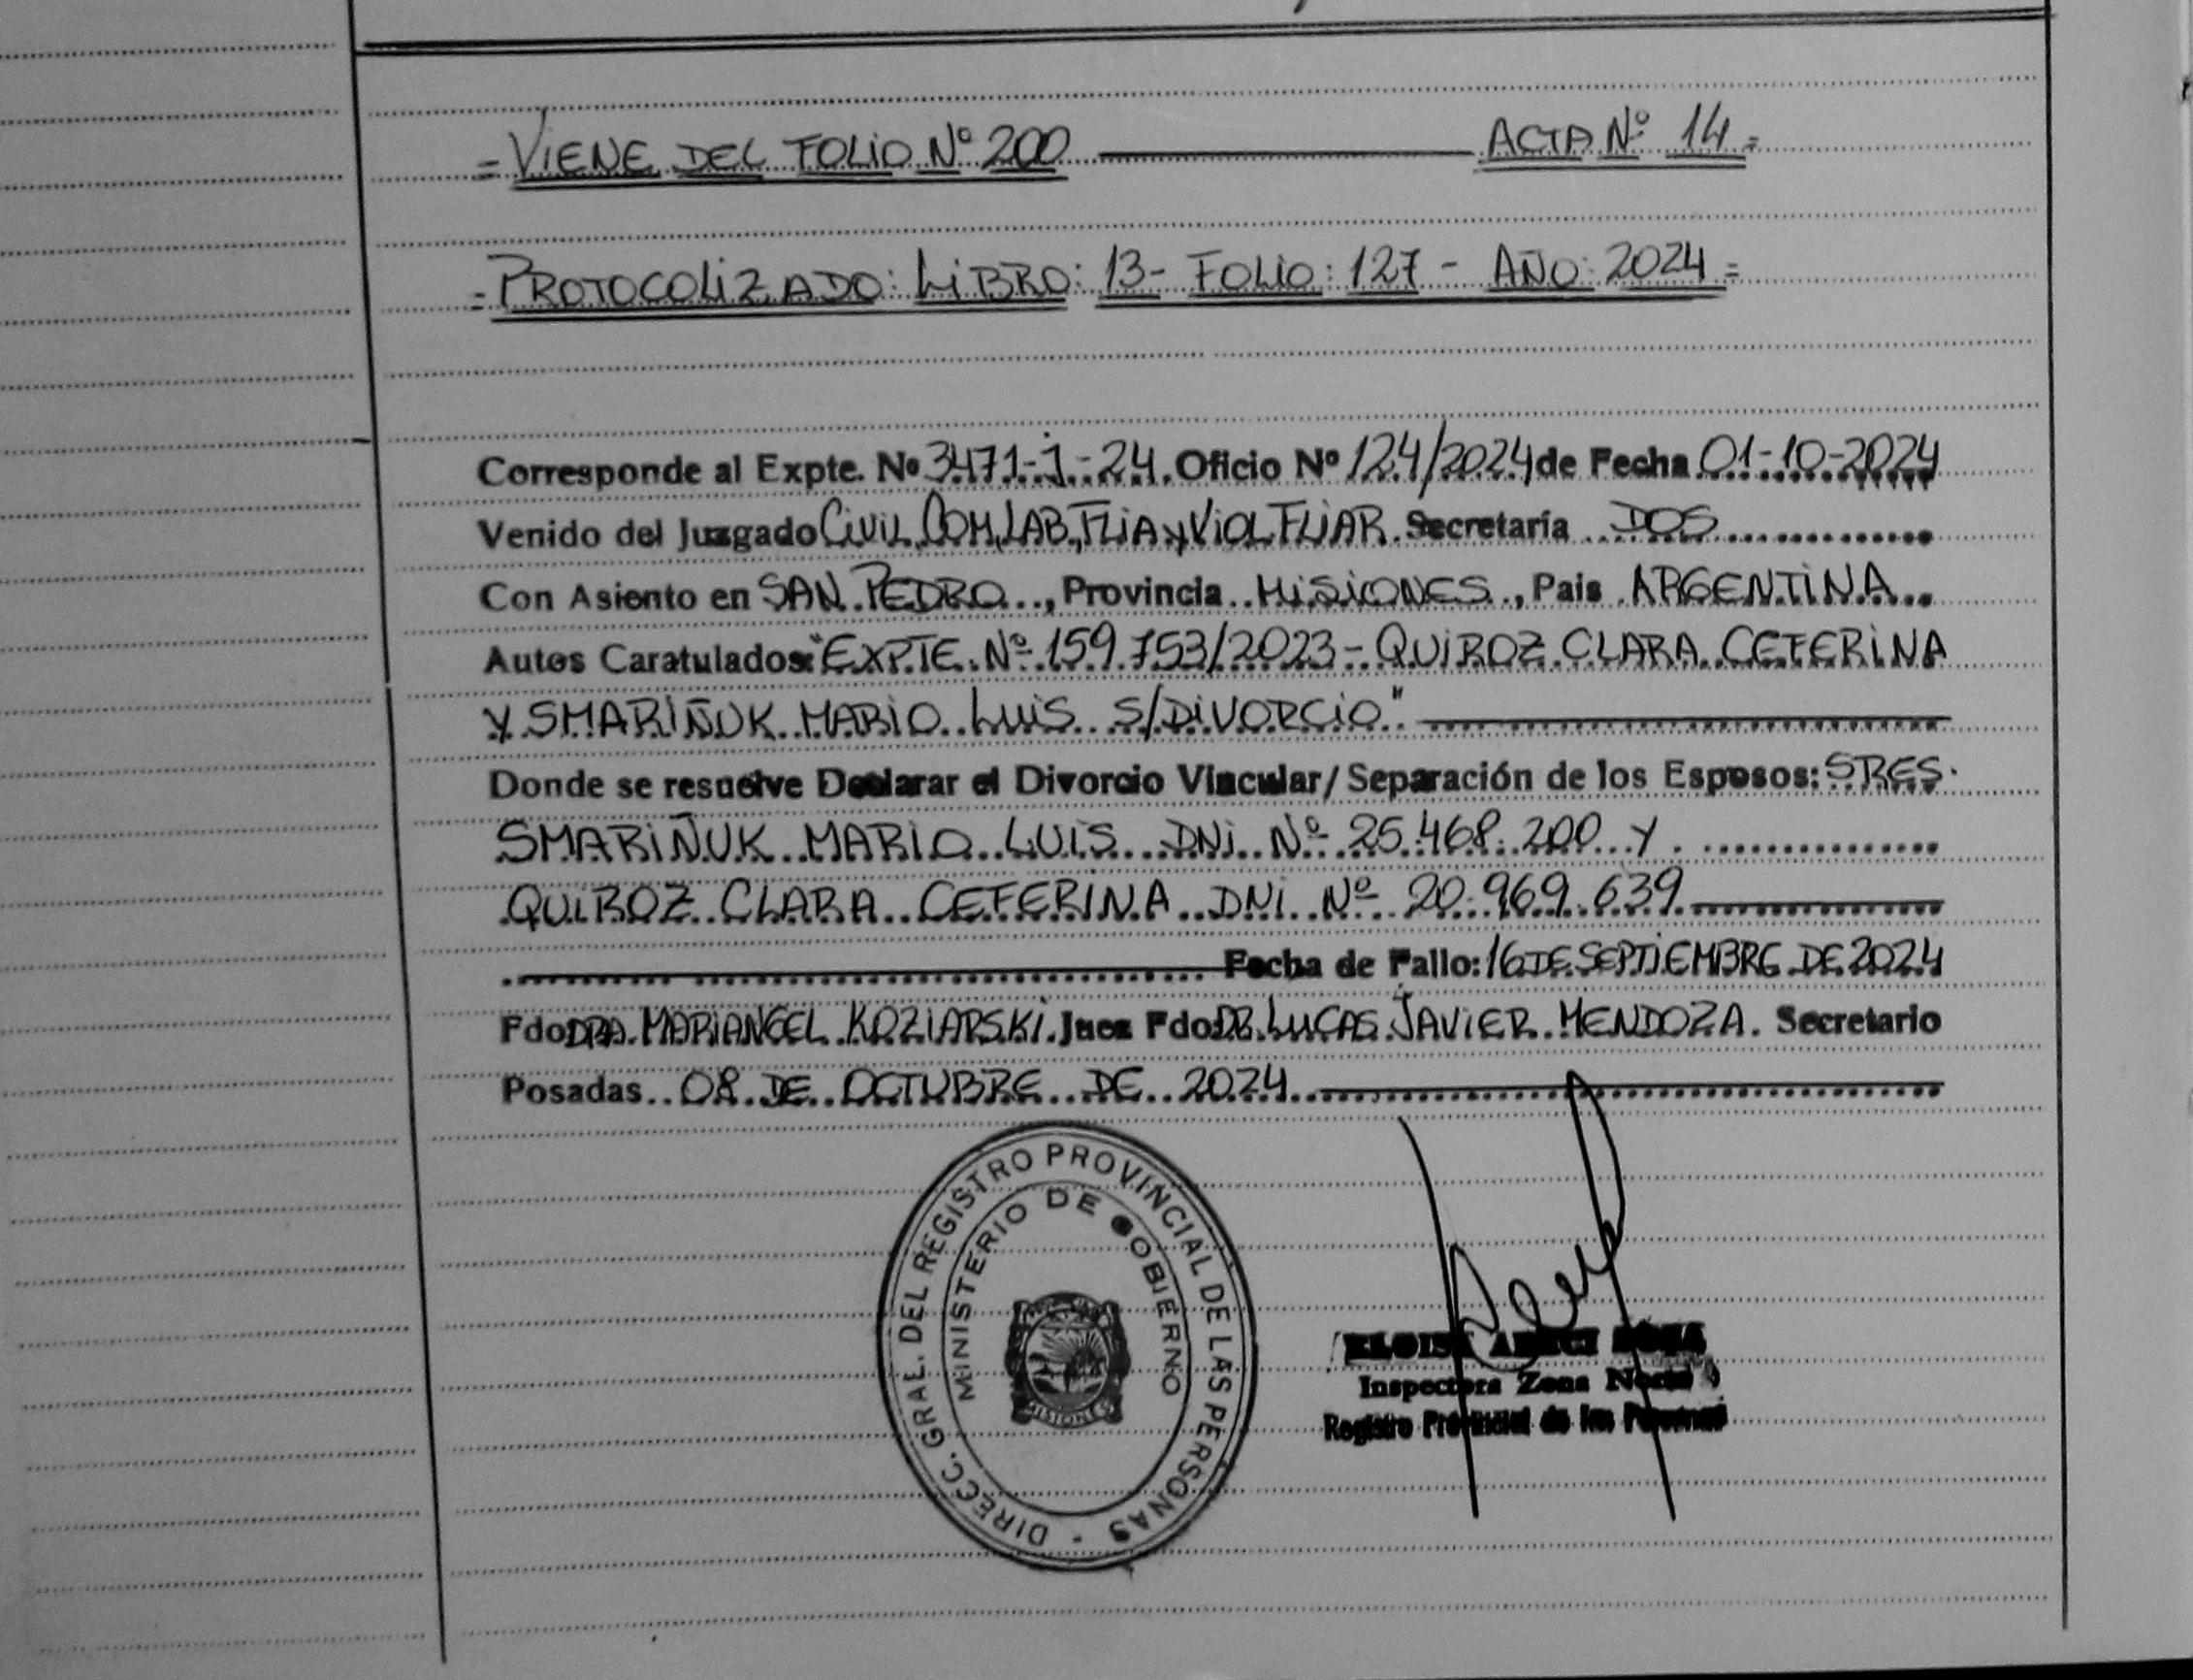 = VIENE DEL FOLIO Nº 200 ACTA Nº 14 =
= PROTOCOLIZADO: LIBRO: 13 - FOLIO: 127 - AÑO: 2024 =
Corresponde al Expte. Nº 3471-J-24. Oficio Nº 124/2024 de Fecha 01-10-2024
Venido del Juzgado CIVIL, COM, LAB, FLIA y VIOL FLIAR. Secretaría DOS
Con Asiento en SAN PEDRO, Provincia MISIONES, Pais ARGENTINA
Autos Caratulados: "EXPTE. Nº 159.753/2023 - QUIROZ CLARA CEFERINA
Y SMARIÑUK MARIO LUIS S/DIVORCIO"
Donde se resuelve Declarar el Divorcio Vincular/Separación de los Esposos: SRES.
SMARIÑUK MARIO LUIS DNI Nº 25.468.200 Y
QUIROZ CLARA CEFERINA DNI Nº 20.969.639
Fecha de Fallo: 16 DE SEPTIEMBRE DE 2024
Fdo DRA. MARIANGEL KOZIARSKI. Juez Fdo: DR. LUCAS JAVIER MENDOZA. Secretario
Posadas 08 DE OCTUBRE DE 2024
DIRECC. GRAL. DEL REGISTRO PROVINCIAL DE LAS PERSONAS -
MINISTERIO DE GOBIERNO
MISIONES
Inspectora Zona Norte
Registro Provincial de las Personas